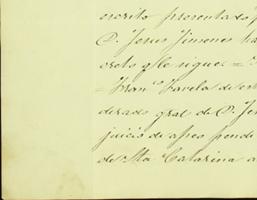 escrito presentado p
D. Jesus Jimenes
creto qe sigue =
= Franco Favela
derado gral de D. Je
juicio de apeo pende
de Sta. Catarina a